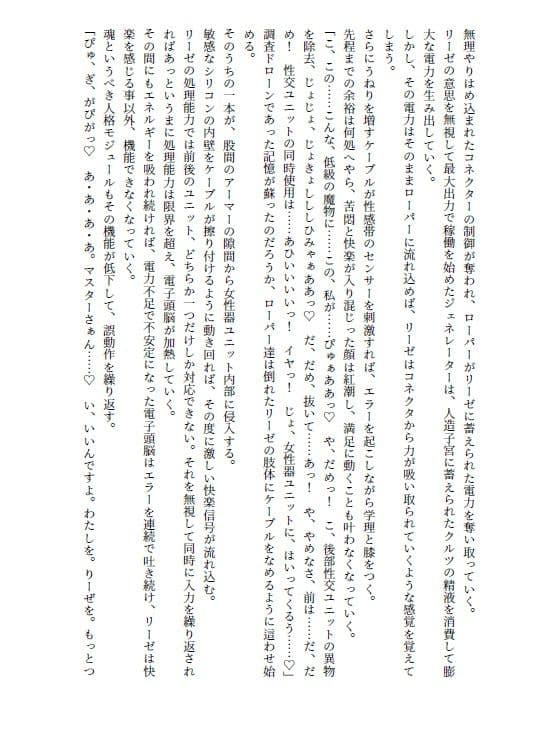 無理やりはめ込まれたコネクターの制御が奪われ、ローパーがリーゼに蓄えられた電力を奪い取っていく。
リーゼの意思を無視して最大出力で稼働を始めたジェネレーターは、人造子宮に蓄えられたクルツの精液を消費して膨
大な電力を生み出していく。
しかし、その電力はそのままローパーに流れ込めば、リーゼはコネクタから力が吸い取られていくような感覚を覚えて
しまう。
さらにうねりを増すケーブルが性感帯のセンサーを刺激すれば、エラーを起こしながら学理と膝をつく。
先程までの余裕は何処へやら、苦悶と快楽が入り混じった顔は紅潮し、満足に動くことも叶わなくなっていく。
「こ、この……こんな、低級の魔物に……この、私が……ぴゅぁああっ♡　や、だめっ！　こ、後部性交ユニットの異物
を除去、じょじょ、じょきょしししひみゃぁああっ♡　だ、だめ、抜いて……あっ！　や、やめなさ、前は……だ、だ
め！　性交ユニットの同時使用は……あひいいいいっ！　イヤっ！　じょ、女性器ユニットに、はいってくるう……♡」
調査ドローンであった記憶が蘇ったのだろうか、ローパー達は倒れたリーゼの肢体にケーブルをなめるように這わせ始
める。
そのうちの一本が、股間のアーマーの隙間から女性器ユニット内部に侵入する。
敏感なシリコンの内壁をケーブルが擦り付けるように動き回れば、その度に激しい快楽信号が流れ込む。
リーゼの処理能力では前後のユニット、どちらか一つだけしか対応できない。それを無視して同時に入力を繰り返され
ればあっというまに処理能力は限界を超え、電子頭脳が加熱していく。
その間にもエネルギーを吸われ続ければ、電力不足で不安定になった電子頭脳はエラーを連続で吐き続け、リーゼは快
楽を感じる事以外、機能できなくなっていく。
魂というべき人格モジュールもその機能が低下して、誤動作を繰り返す。
「ぴゅ、ぎ、がぴがっ♡　あ・あ・あ・あ。マスターさぁん……♡　い、いいんですよ。わたしを。りーぜを。もっとつ